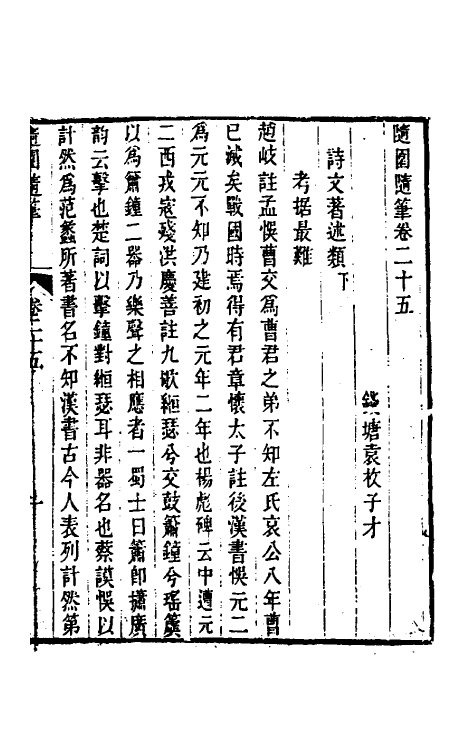 隨園隨筆卷二十五
錢塘袁枚子才
詩文著述類下
考据最難
趙岐註孟悞曹交爲曹君之弟不知左氏哀公八年曹
已滅矣戰國時焉得有君章懷太子註後漢書悞元二
爲元元不知乃建初之元年二年也楊彪碑云中遭元
二西戎寇殘洪慶善註九歌緪瑟兮交鼓簫鐘兮瑤簴
以爲簫鐘二器乃樂聲之相應者一蜀士曰簫卽㩋廣
韵云擊也楚詞以擊鐘對緪瑟耳非器名也蔡謨悞以
計然爲范蠡所著書名不知漢書古今人表列計然第
隨園隨筆
卷二十五